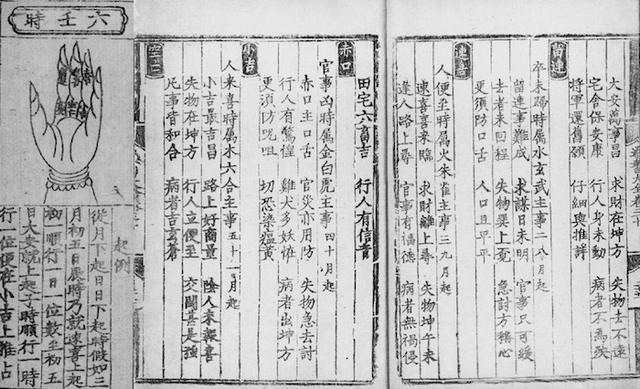 大安萬事昌 求財在坤方 失物去不遠
宅舍保安康 行人身未動 病者不為殃
將軍還舊願 仔細與推詳
留連
卒未歸時屬水玄武主事二八月起
留連事難成 求謀日未明 官事只可緩
去者未回程 失物巽上覓 急討方稱心
更須防口舌 人口且平平
速喜
人便至時屬火朱雀主事三九月起
速喜喜來臨 求財離上尋 失物坤午未
逢人路上尋 官事有福德 病者無禍侵
田宅六畜吉 行人有信音
赤口
官事凶時屬金白虎主事四十月起
赤口主口舌 官災亦用防 失物急去討
行人有驚惶 雞犬多妖怪 病者出坤方
更須防咒咀 切恐染瘟黄
小吉
人來喜時屬木六合主事五十一月起
小吉最吉昌 路上好商量 陰人來報喜
失物在坤方 行人立便至 交關甚是強
凡事皆和合 病者告穹蒼
空亡
六壬時
起例
從月下起日日下起時假如三
月初五日辰時乃就速喜上起
初一順行一日一位數至初五
日大安就上起子時順行一時
行一位便在小吉上推占